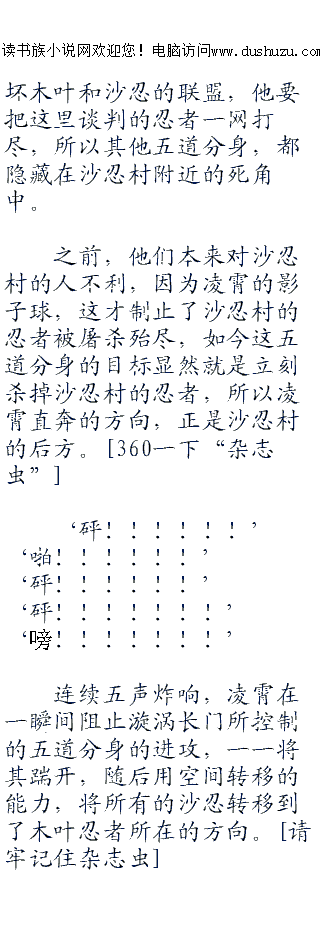 读书族小说网欢迎您！电脑访问www.dushuzu.com
坏木叶和沙忍的联盟，他要
把这里谈判的忍者一网打
尽，所以其他五道分身，都
隐藏在沙忍村附近的死角
中。
之前，他们本来对沙忍
村的人不利，因为凌霄的影
子球，这才制止了沙忍村的
忍者被屠杀殆尽，如今这五
道分身的目标显然就是立刻
杀掉沙忍村的忍者，所以凌
霄直奔的方向，正是沙忍村
的后方。[360一下“杂志
虫”]
‘砰！！！！！！’
‘啪！！！！！！’
‘砰！！！！！！’
‘砰！！！！！！！’
‘嗙！！！！！！！’
连续五声炸响，凌霄在
一瞬间阻止漩涡长门所控制
的五道分身的进攻，一一将
其踹开，随后用空间转移的
能力，将所有的沙忍转移到
了木叶忍者所在的方向。[请
牢记住杂志虫]